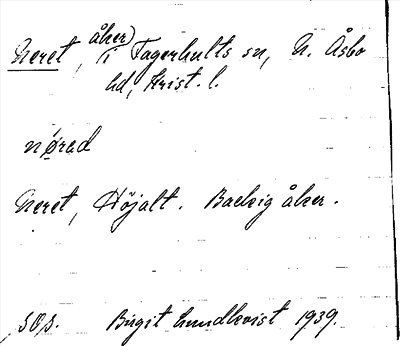 Neret, åker, i Fagerhults sn, N. Åsbo
hd, Krist. l.
nørad
Neret, Höjalt. Backig åker.
Birgit Lundkvist 1939.